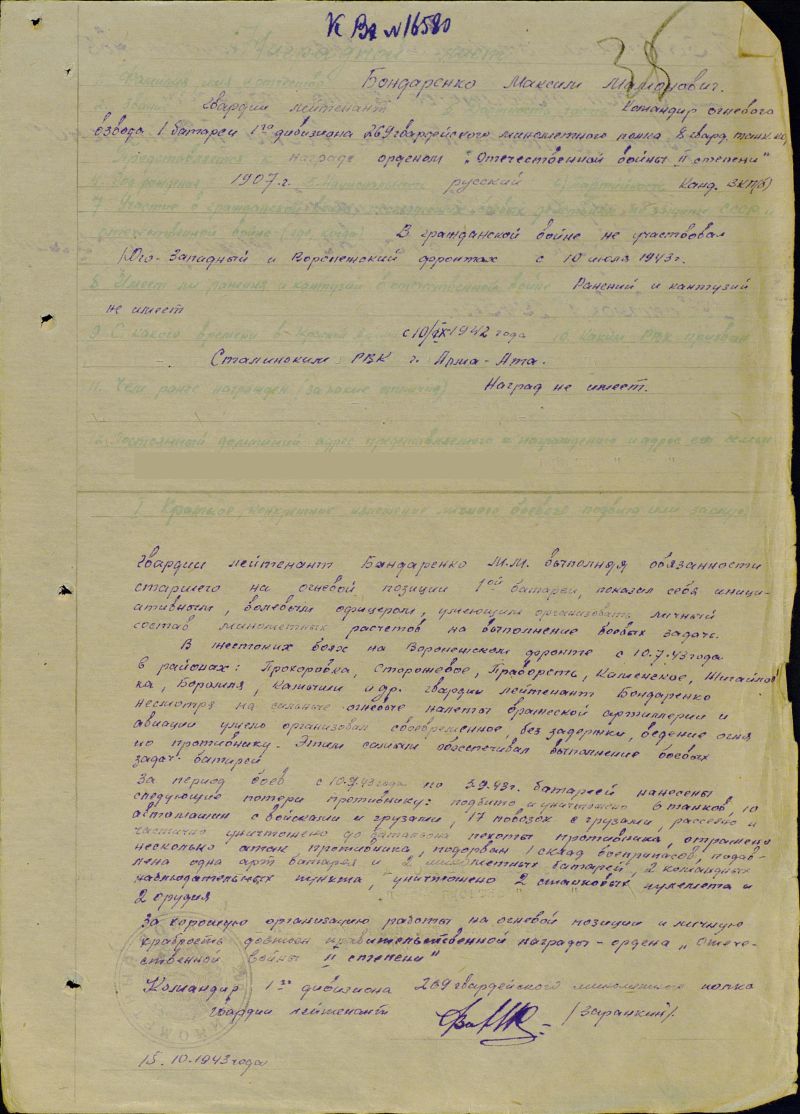 К Вх №16580
35
Наградной лист
Фамилия имя и отчество Бондаренко Максим Мамонович.
2. Звание Гвардии лейтенант Командир огневого
взвода 1 батареи 1го дивизиона 269 гвардейского минометного полка 8 гвард. танк.
Представляется к награде орденом „Отечественной войны II степени"
4. Год рождения 1907 г. 5. Национальность русский 6. Партийность Канд. ВКП(б)
7. Участие в гражданской войне
отечественной войне (где, когда) В гражданской войне не участвовал
Юго-Западный и Воронежский фронтах с 10 июля 1943 г.
8. Имеет ли ранения и контузии в отечественной войне Ранений и кантузий
не имеет
9. С какого времени в Красной армии с 10/IX 1942 года 10. Каким РВК призван
Сталинским РВК г. Алма-Ата.
11. Чем ранее награжден (за какие отличия) Наград не имеет.
12. Постоянный домашний адрес представляемого к награждению и адрес его семьи
I. Краткое, конкретное изложение личного боевого подвига или заслуг
Гвардии лейтенант Бондаренко М.М. выполняя обязанности
старшего на огневой позиции 1ой батареи, показал себя иници-
ативным, волевым офицером, умеющим организовать личный
состав минометных расчетов на выполнение боевых задач.
В жестоких боях на Воронежском фронте с 10.7.43 года
в районах: Прохоровка, Сторожевое, Правороть, Каменское,
ка, Боромля, Камыши и др. гвардии лейтенант Бондаренко
несмотря на сильные огневые налеты вражеской артиллерии и
авиации умело организовал своевременное, без задержки, ведение огня
по противнику. Этим самым обеспечивал выполнение боевых
задач батареи
За период боев с 10.7.43 года по 5.9.43 г. батареей нанесены
следующие потери противнику: подбито и уничтожено 6 танков, 10
автомашин с войсками и грузами, 17 повозок с грузами, рассеяно и
частично уничтожено до батальона пехоты противника, отражено
несколько атак противника, подорван 1 склад боеприпасов, подав-
лена одна арт. батарея и 2 минометных батареи, 2 командных
наблюдательных пункта, уничтожено 2 станковых пулемета и
2 орудия
За хорошую организацию работы на огневой позиции и личную
храбрость достоин правительственной награды - ордена „Отече-
ственной войны II степени"
Командир 1го дивизиона 269 гвардейского минометного полка
гвардии лейтенант /Заранкий/.
15.10.1943 года